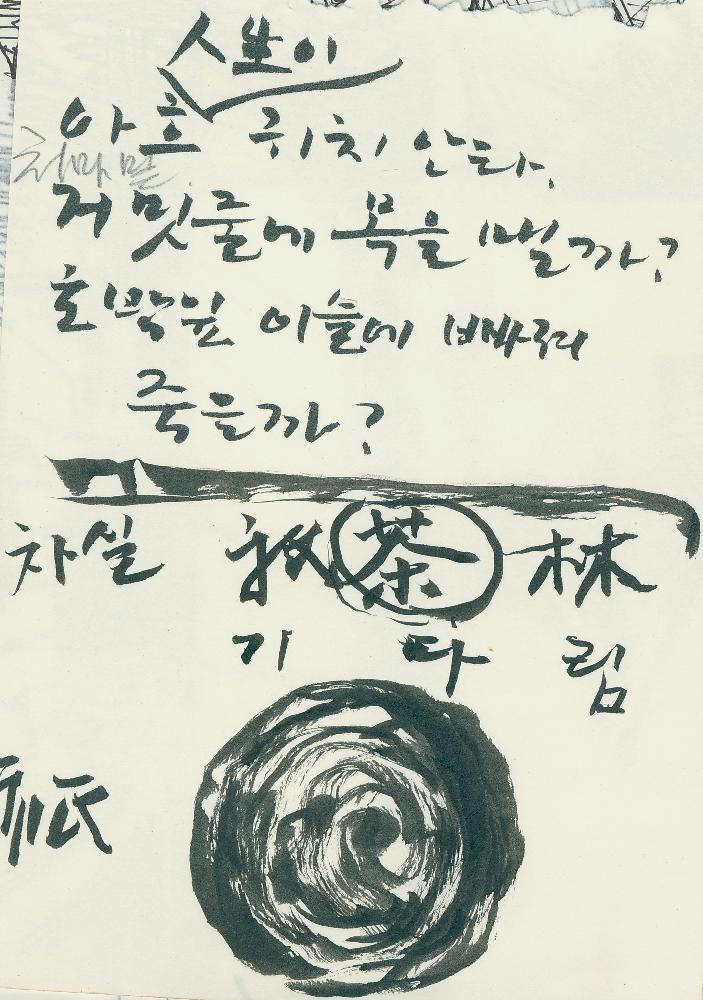 人生이
아흔 귀치 안타,
처마밑
거밋줄에 목을 맬까?
호박잎 이슬에 빠져
죽을까?
차실 祇 茶 林
기 다 림
祇